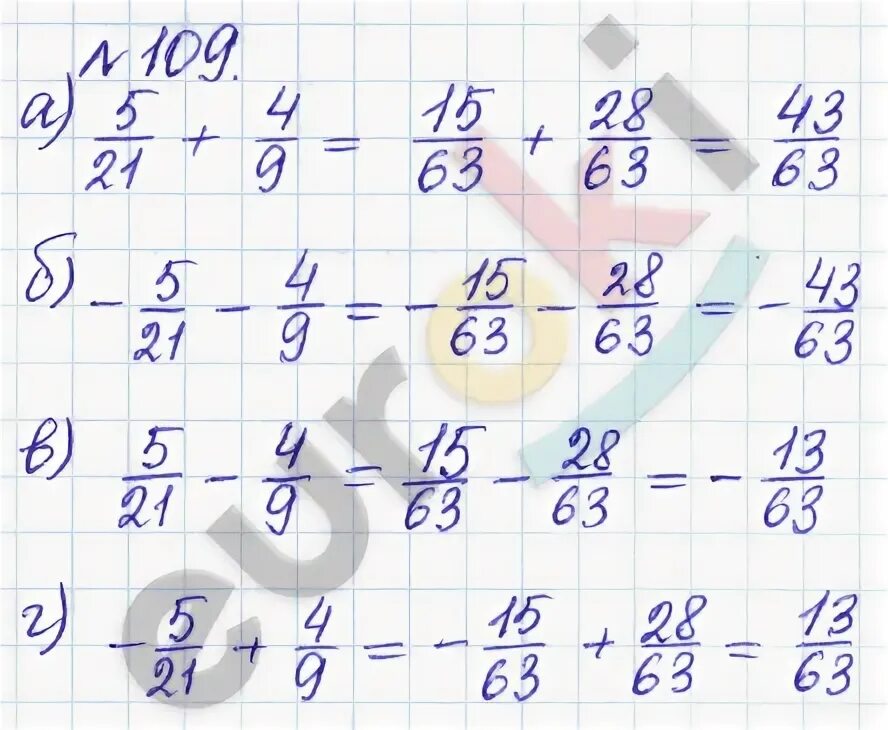 №109.
а) 5/21 + 4/9 = 15/63 + 28/63 = 43/63
б) - 5/21 - 4/9 = - 15/63 - 28/63 = - 43/63
в) 5/21 - 4/9 = 15/63 - 28/63 = - 13/63
г) - 5/21 + 4/9 = - 15/63 + 28/63 = 13/63
euroki